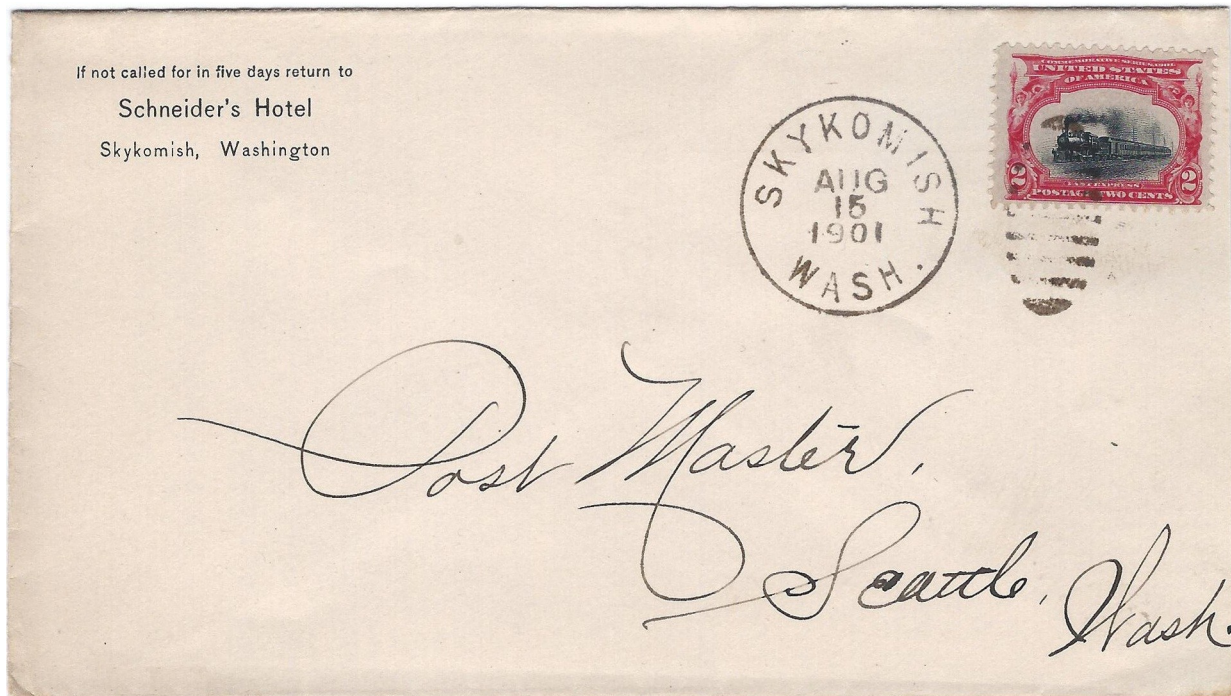 If not called for in five days return to
Schneider's Hotel
Skykomish, Washington
SKYKOMISH
AUG
15
1901
WASH.
COMMEMORATIVE SERIES 1901
UNITED STATES
OF AMERICA
2 2
FAST EXPRESS
POSTAGE TWO CENTS
Post Master,
Seattle, Wash.